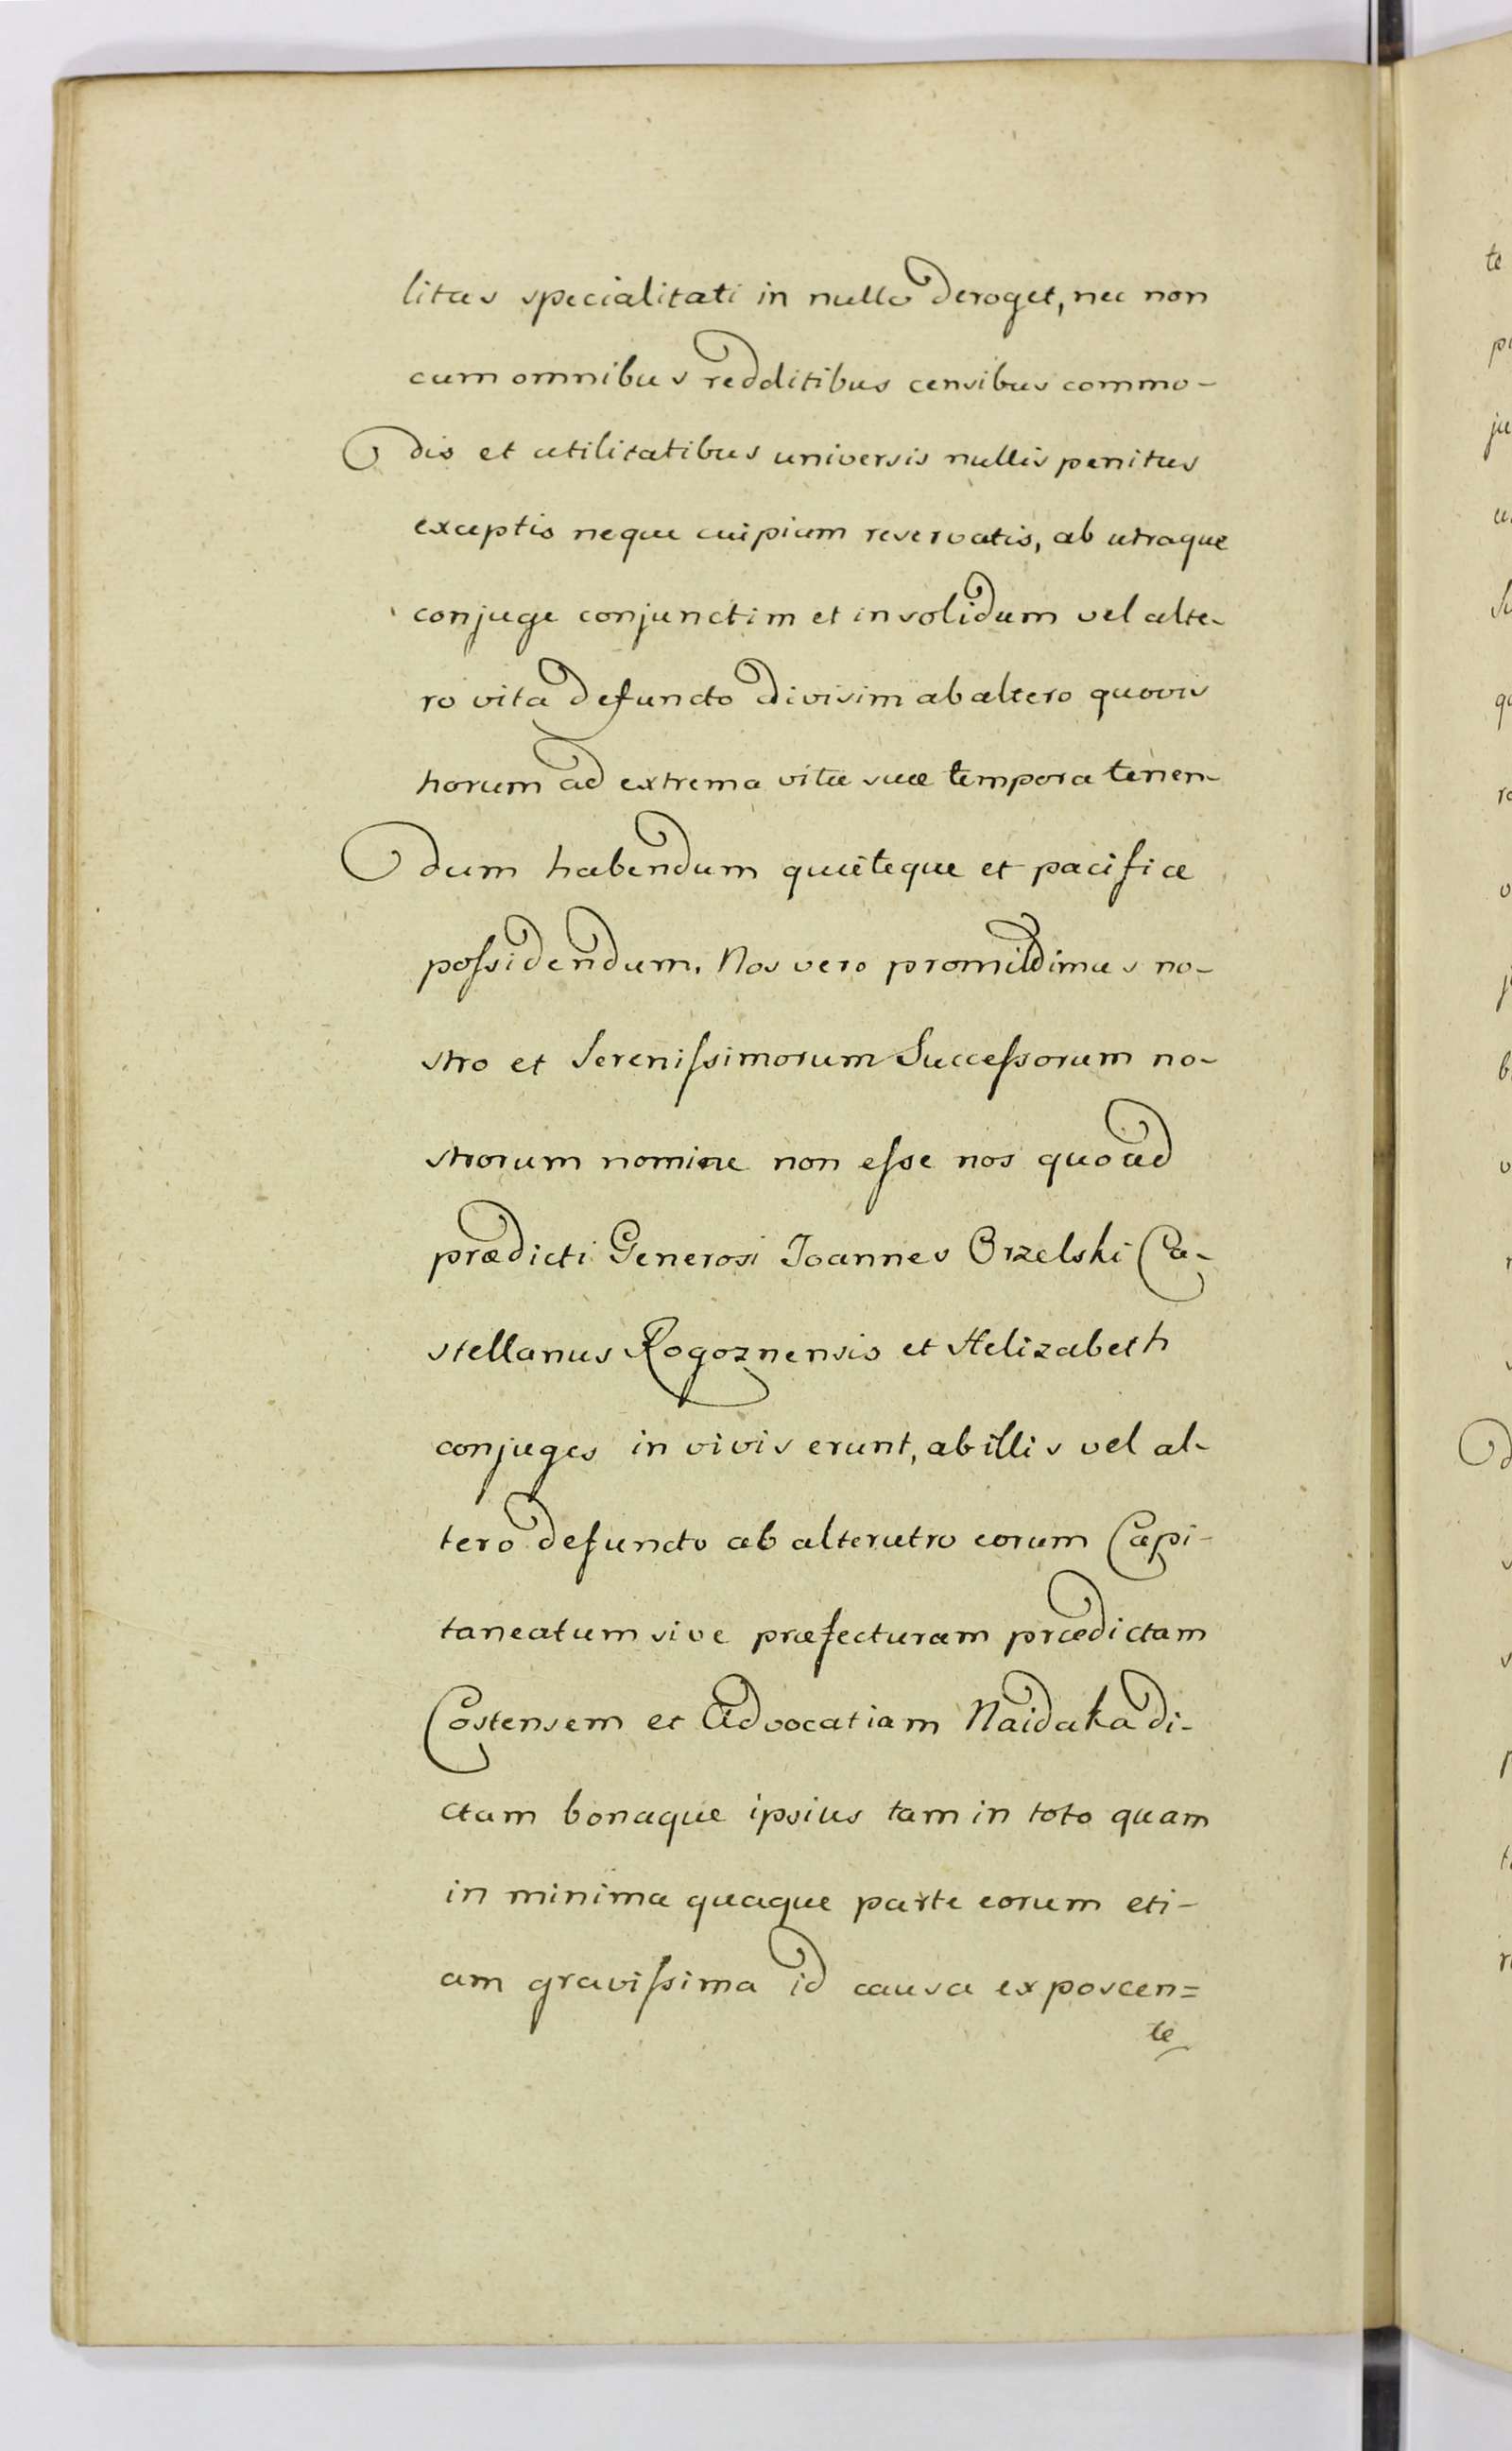 litas specialitati in nullo deroget, nec non
cum omnibus redditibus censibus commo-
dis et utilitatibus universis nullis penitus
exceptis neque cuipiam reservatis, ab utraque
conjuge conjunctim et in solidum vel alte-
ro vita defuncto divisim ab altero quovis
horum ad extrema vitæ suæ tempora tenen-
dum habendum quieteque et pacifice
possidendum. Nos vero promittimus no-
stro et Serenissimorum Successorum no-
strorum nomine non esse nos quoad
prædicti Generosi Joannes Orzelski Ca-
stellanus Rogoznensis et Helizabeth
conjuges in vivis erunt, ab illis vel al-
tero defuncto ab alterutro eorum Capi-
taneatum sive præfecturam prædictam
Costensem et Advocatiam Naidaka di-
ctam bonaque ipsius tam in toto quam
in minima quaque parte eorum eti-
am gravissima id causa exposcen=
te